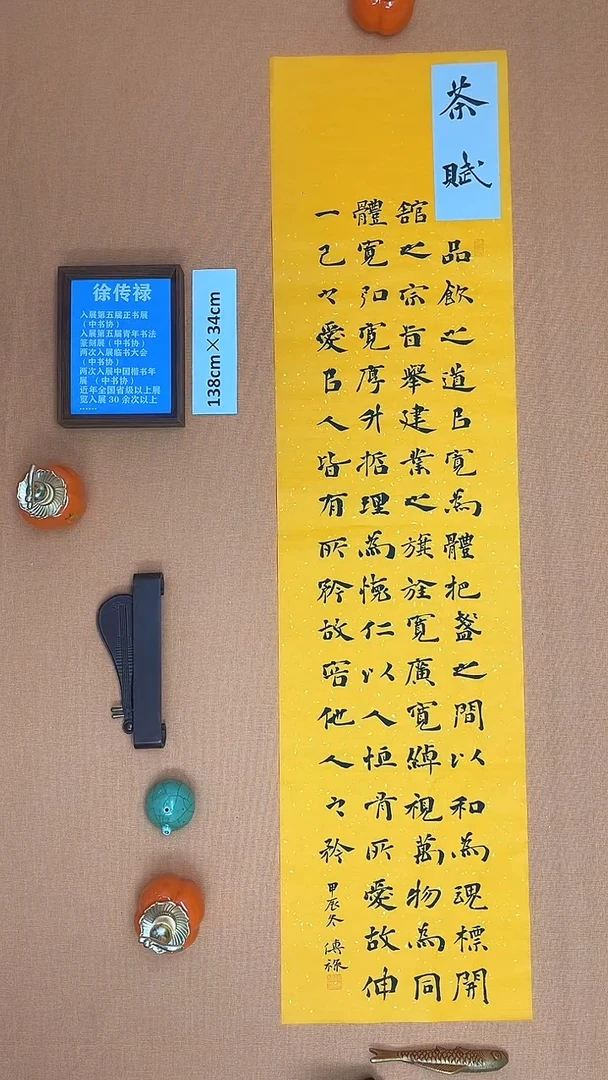 茶賦
品飲之道㠯寬為體把盞之間以和為魂標開
舘之宗旨舉建業之旗寬廣寬綽視萬物為同
體寬弘寬厚升理為仁以人恒有所愛故伸
一己之愛㠯人皆有所矜故容他人之矜
甲辰冬 傳祿
徐传禄
入展第五届正书展
（中书协）
入展第五届青年书法
篆刻展（中书协）
两次入展临书大会
（中书协）
两次入展中国楷书年
展（中书协）
近年全国省级以上展
览入展 30 余次以上
……
138cm×34cm